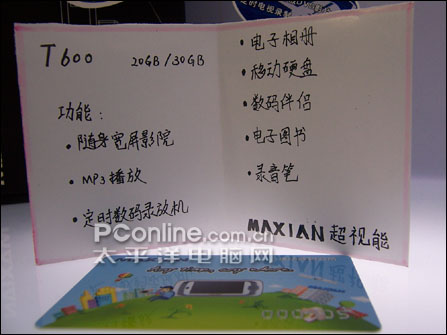 T600 20GB/30GB
功能:
• 随身宽屏影院
• MP3播放
• 定时数码录放机
• 电子相册
• 移动硬盘
• 数码伴侣
• 电子图书
• 录音笔
MAXIAN超视能
PConline.com.cn
太平洋电脑网
Any time, any where.